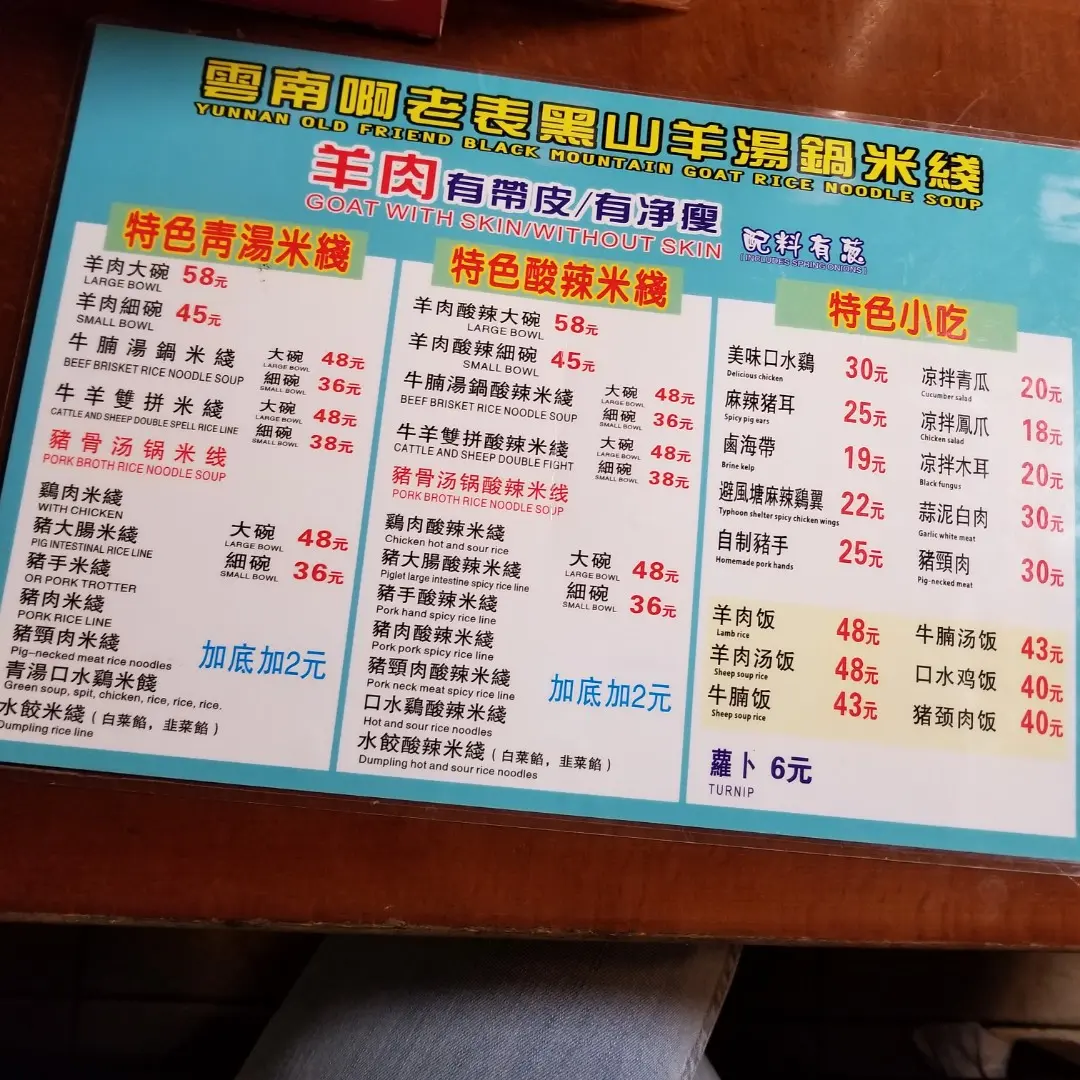 雲南啊老表黑山羊湯鍋米綫
YUNNAN OLD FRIEND BLACK MOUNTAIN GOAT RICE NOODLE SOUP
羊肉有帶皮/有净瘦
GOAT WITH SKIN/WITHOUT SKIN
配料有葱
(INCLUDES SPRING ONIONS)
特色青湯米綫
羊肉大碗 58元
LARGE BOWL
羊肉細碗 45元
SMALL BOWL
牛腩湯鍋米綫 大碗 48元
LARGE BOWL
BEEF BRISKET RICE NOODLE SOUP 細碗 36元
SMALL BOWL
牛羊雙拼米綫 大碗 48元
LARGE BOWL
CATTLE AND SHEEP DOUBLE SPELL RICE LINE 細碗 38元
SMALL BOWL
豬骨汤锅米线
PORK BROTH RICE NOODLE SOUP
鷄肉米綫
WITH CHICKEN
豬大腸米綫 大碗 48元
PIG INTESTINAL RICE LINE LARGE BOWL
豬手米綫 細碗 36元
OR PORK TROTTER SMALL BOWL
豬肉米綫
PORK RICE LINE
豬頸肉米綫
Pig-necked meat rice noodles
加底加2元
青湯口水鷄米餞
Green soup, spit, chicken, rice, rice, rice.
水餃米綫(白菜餡，韭菜餡)
Dumpling rice line
特色酸辣米綫
羊肉酸辣大碗 58元
LARGE BOWL
羊肉酸辣細碗 45元
SMALL BOWL
牛腩湯鍋酸辣米綫 大碗 48元
LARGE BOWL
BEEF BRISKET RICE NOODLE SOUP 細碗 36元
SMALL BOWL
牛羊雙拼酸辣米綫 大碗 48元
LARGE BOWL
CATTLE AND SHEEP DOUBLE FIGHT 細碗 38元
SMALL BOWL
豬骨汤锅酸辣米线
PORK BROTH RICE NOODLE SOUP
鷄肉酸辣米綫
Chicken hot and sour rice
豬大腸酸辣米綫 大碗 48元
Piglet large intestine spicy rice line LARGE BOWL
豬手酸辣米綫 細碗 36元
Pork hand spicy rice line SMALL BOWL
豬肉酸辣米綫
Pork pork spicy rice line
豬頸肉酸辣米綫
Pork neck meat spicy rice line
加底加2元
口水鷄酸辣米綫
Hot and sour rice noodles
水餃酸辣米綫(白菜餡，韭菜餡)
Dumpling hot and sour rice noodles
特色小吃
美味口水鷄 30元
Delicious chicken
麻辣豬耳 25元
Spicy pig ears
鹵海帶 19元
Brine kelp
避風塘麻辣鷄翼 22元
Typhoon shelter spicy chicken wings
自制豬手 25元
Homemade pork hands
凉拌青瓜 20元
Cucumber salad
凉拌鳳爪 18元
Chicken salad
凉拌木耳 20元
Black fungus
蒜泥白肉 30元
Garlic white meat
豬頸肉 30元
Pig-necked meat
羊肉饭 48元
Lamb rice
羊肉汤饭 48元
Sheep soup rice
牛腩饭 43元
Sheep soup rice
牛腩汤饭 43元
口水鸡饭 40元
猪颈肉饭 40元
蘿卜 6元
TURNIP